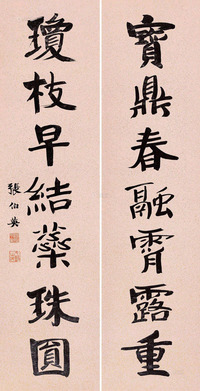 寶鼎春融霄露重
瓊枝早結蘂珠圓
張伯英